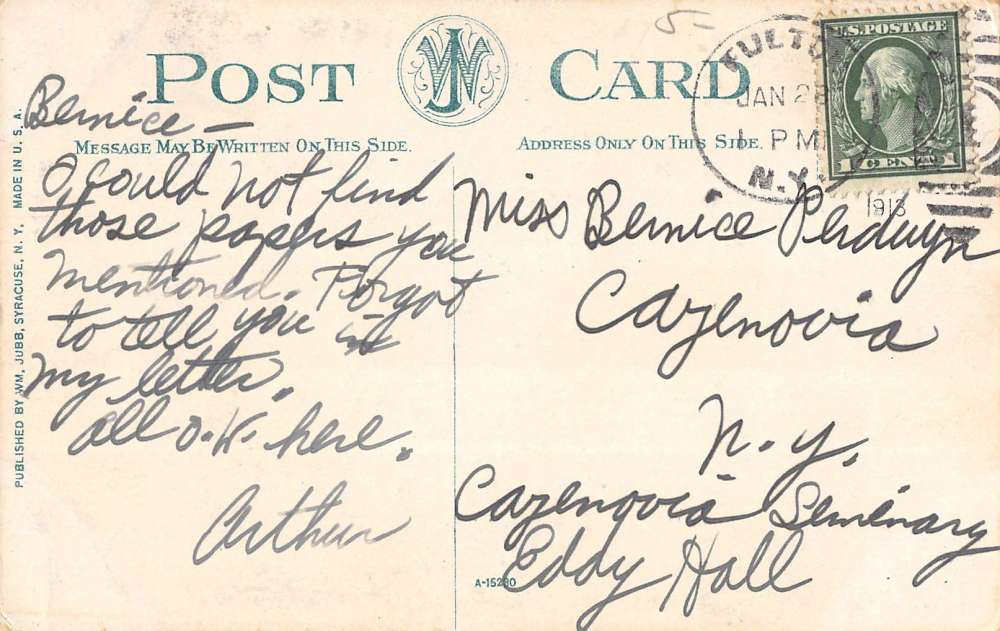 POST CARD
5-
FULTON
JAN 2
1 PM
N.Y.
1913
U.S. POSTAGE
1 CENT 1
MESSAGE MAY BE WRITTEN ON THIS SIDE.
ADDRESS ONLY ON THIS SIDE.
Bernice —
I could not find
those papers you
mentioned. Forgot
to tell you in
my letter.
all o.k. here.
Arthur
Miss Bernice
Cazenovia
N.Y.
Cazenovia Seminary
Eddy Hall
A-15280
PUBLISHED BY WM. JUBB, SYRACUSE, N. Y. MADE IN U. S. A.